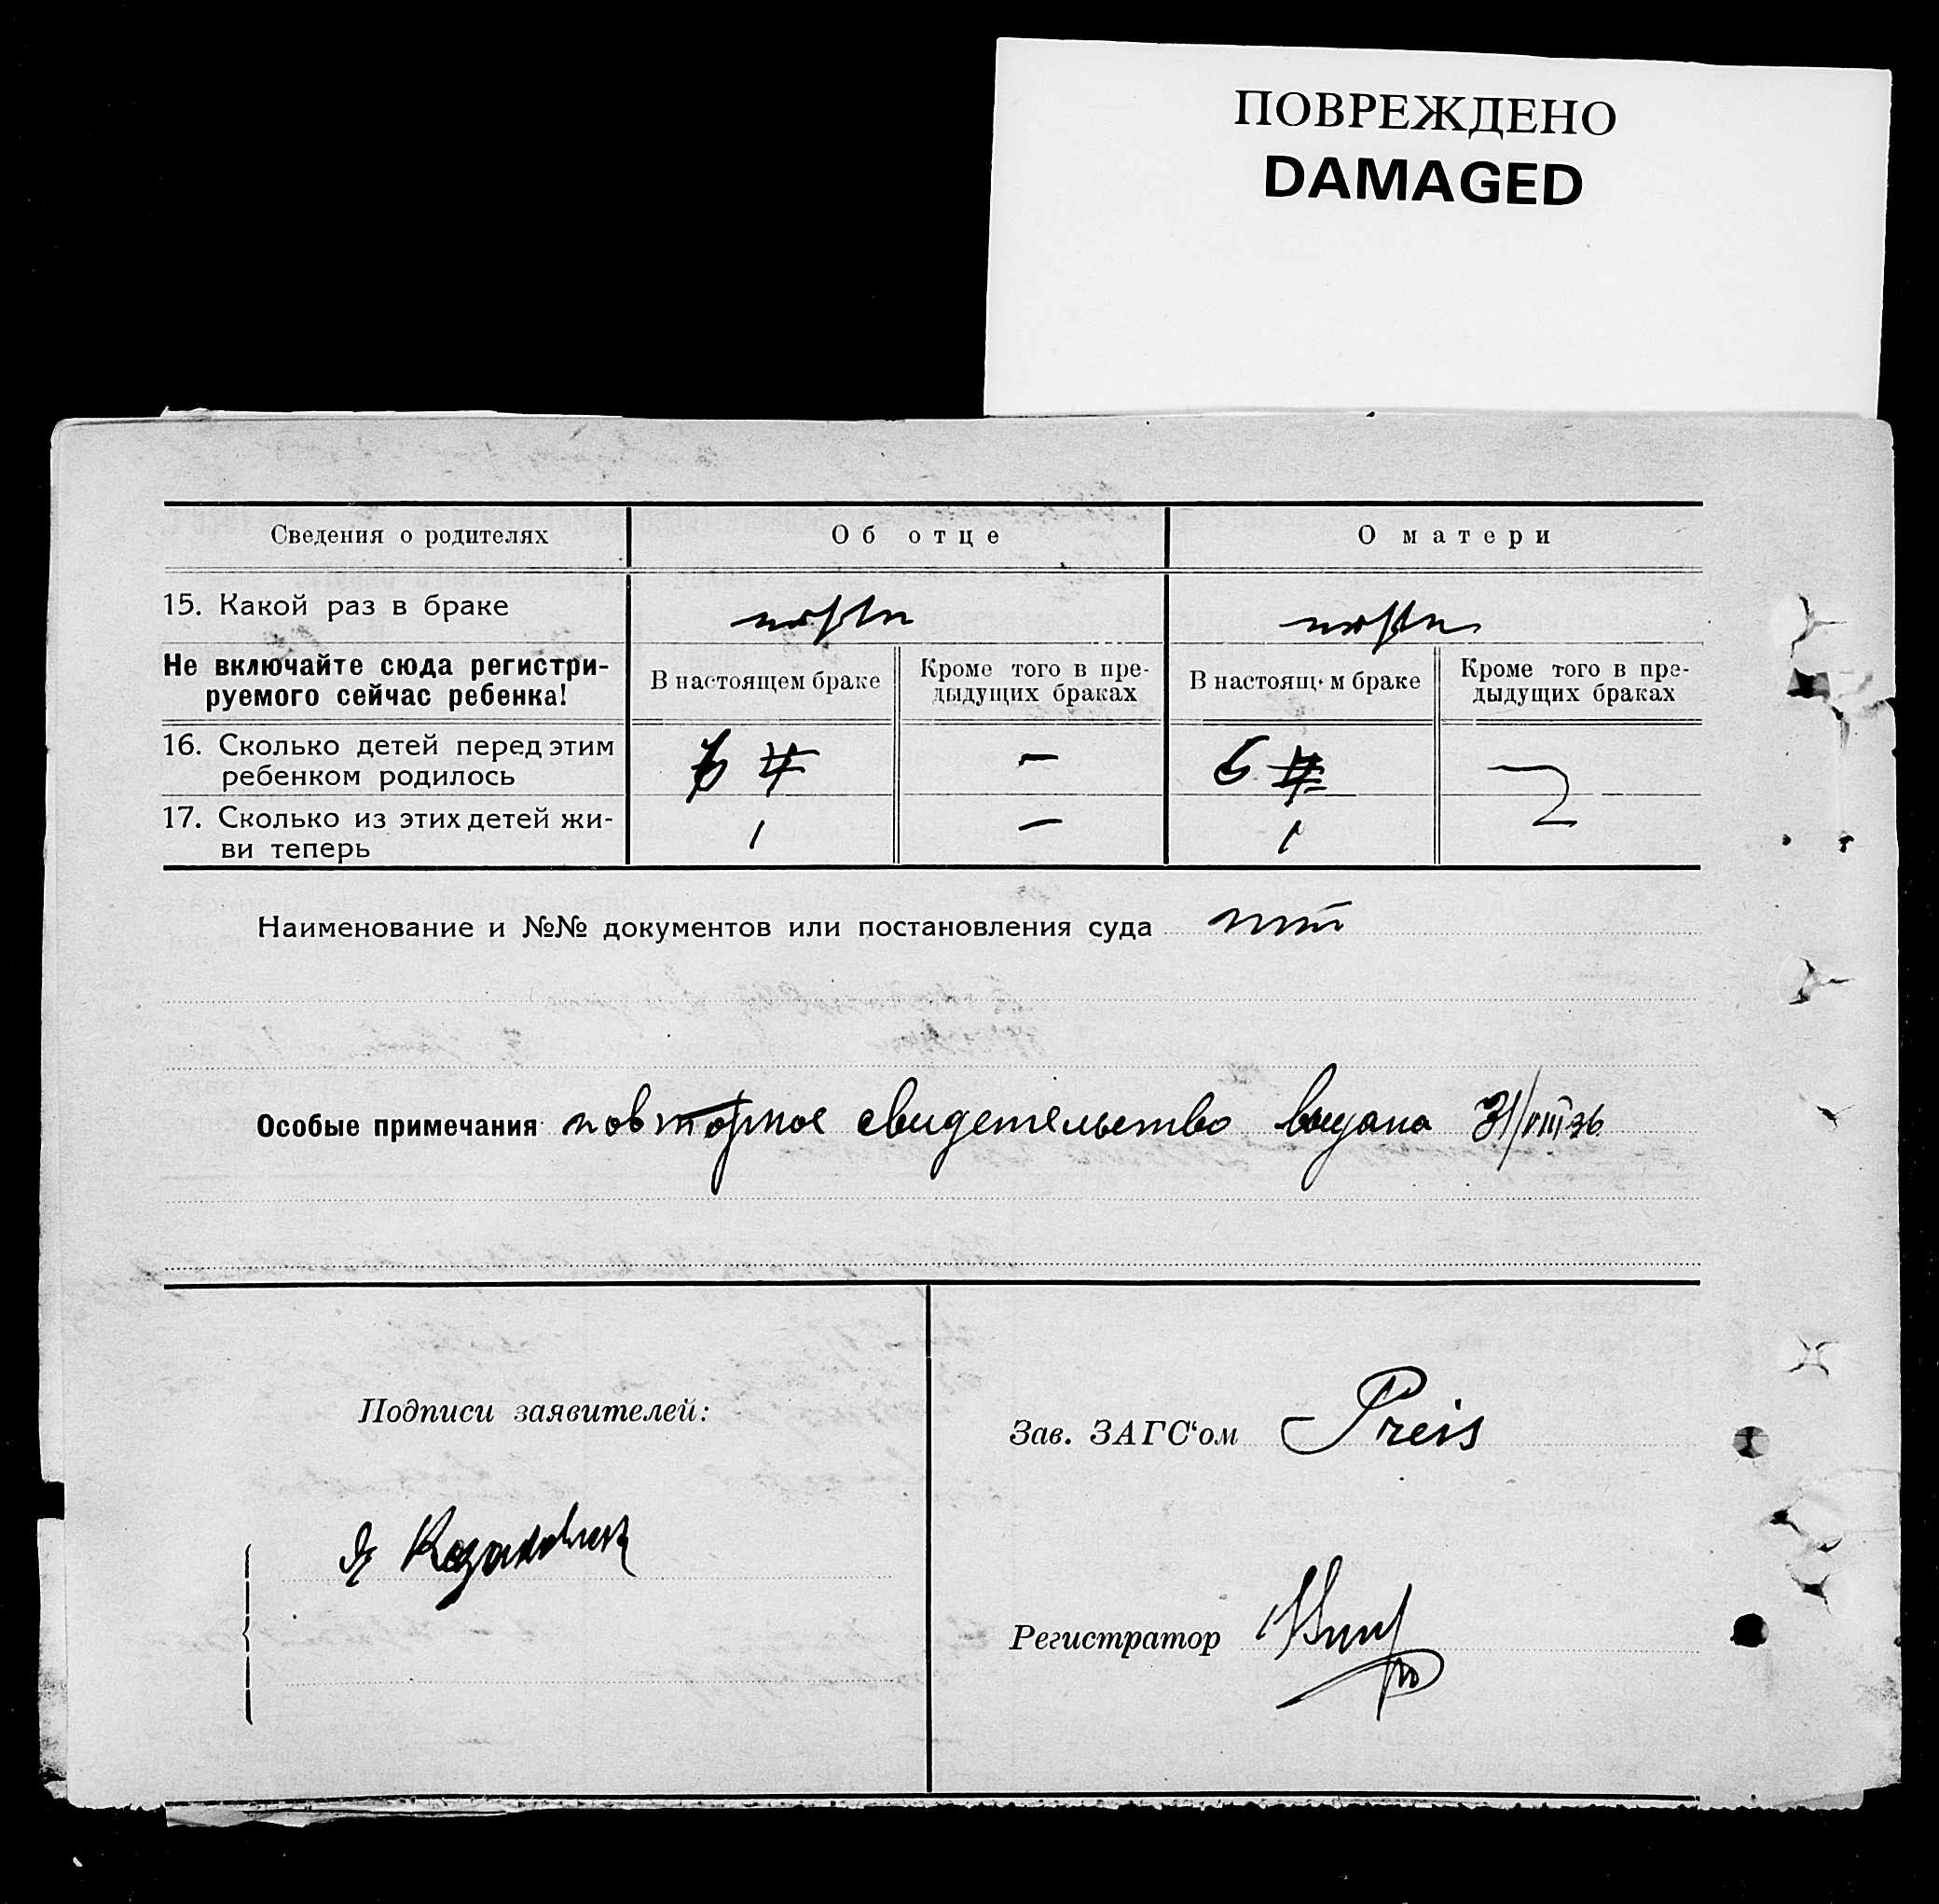 ПОВРЕЖДЕНО
DAMAGED
Сведения о родителях
Об отце
О матери
15. Какой раз в браке
Не включайте сюда регистри-
руемого сейчас ребенка!
В настоящем браке
Кроме того в пре-
дыдущих браках
В настоящ м браке
Кроме того в пре-
дыдущих браках
16. Сколько детей перед этим
ребенком родилось
–
6
17. Сколько из этих детей жи-
ви теперь
1
–
1
Наименование и №№ документов или постановления суда
Особые примечания повторное свидетельство выдано 31/VIII 36.
Подписи заявителей:
Зав. ЗАГС‘ом Preis
Регистратор